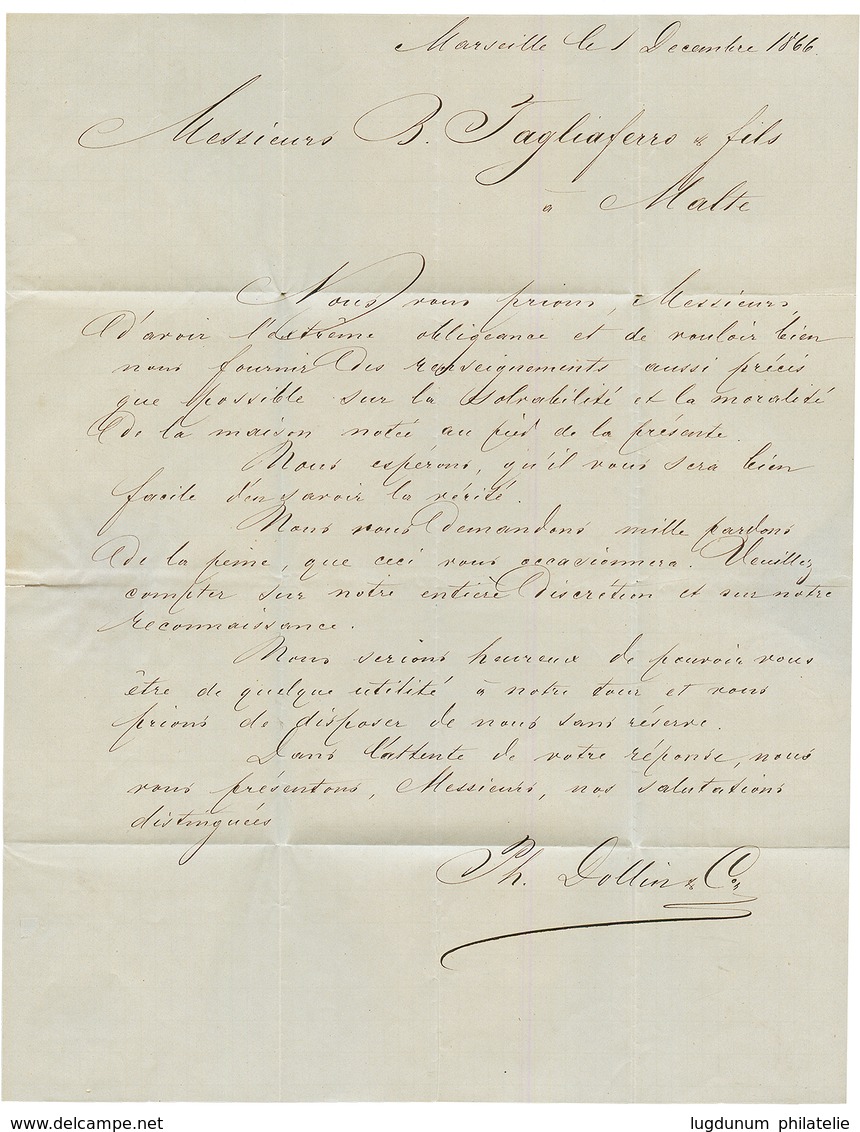 Marseille le 1 Decembre 1866.
Messieurs B. Tagliaferro & fils
à Malte
Nous vous prions, Messieurs,
d'avoir l'extrême obligeance et de vouloir bien
nous fournir des renseignements aussi précis
que possible sur la solvabilité et la moralité
de la maison notée au pied de la présente.
Nous espérons, qu'il vous sera bien
facile d'en savoir la vérité.
Nous vous demandons mille pardons
de la peine, que ceci vous occasionnera. Veuillez
compter sur notre entière discrétion et sur notre
reconnaissance.
Nous serions heureux de pouvoir vous
être de quelque utilité à notre tour et vous
prions de disposer de nous sans réserve.
Dans l'attente de votre réponse, nous
vous présentons, Messieurs, nos salutations
distinguées
Ph. Dollin & Co.
www.delcampe.net
lugdunum philatelie